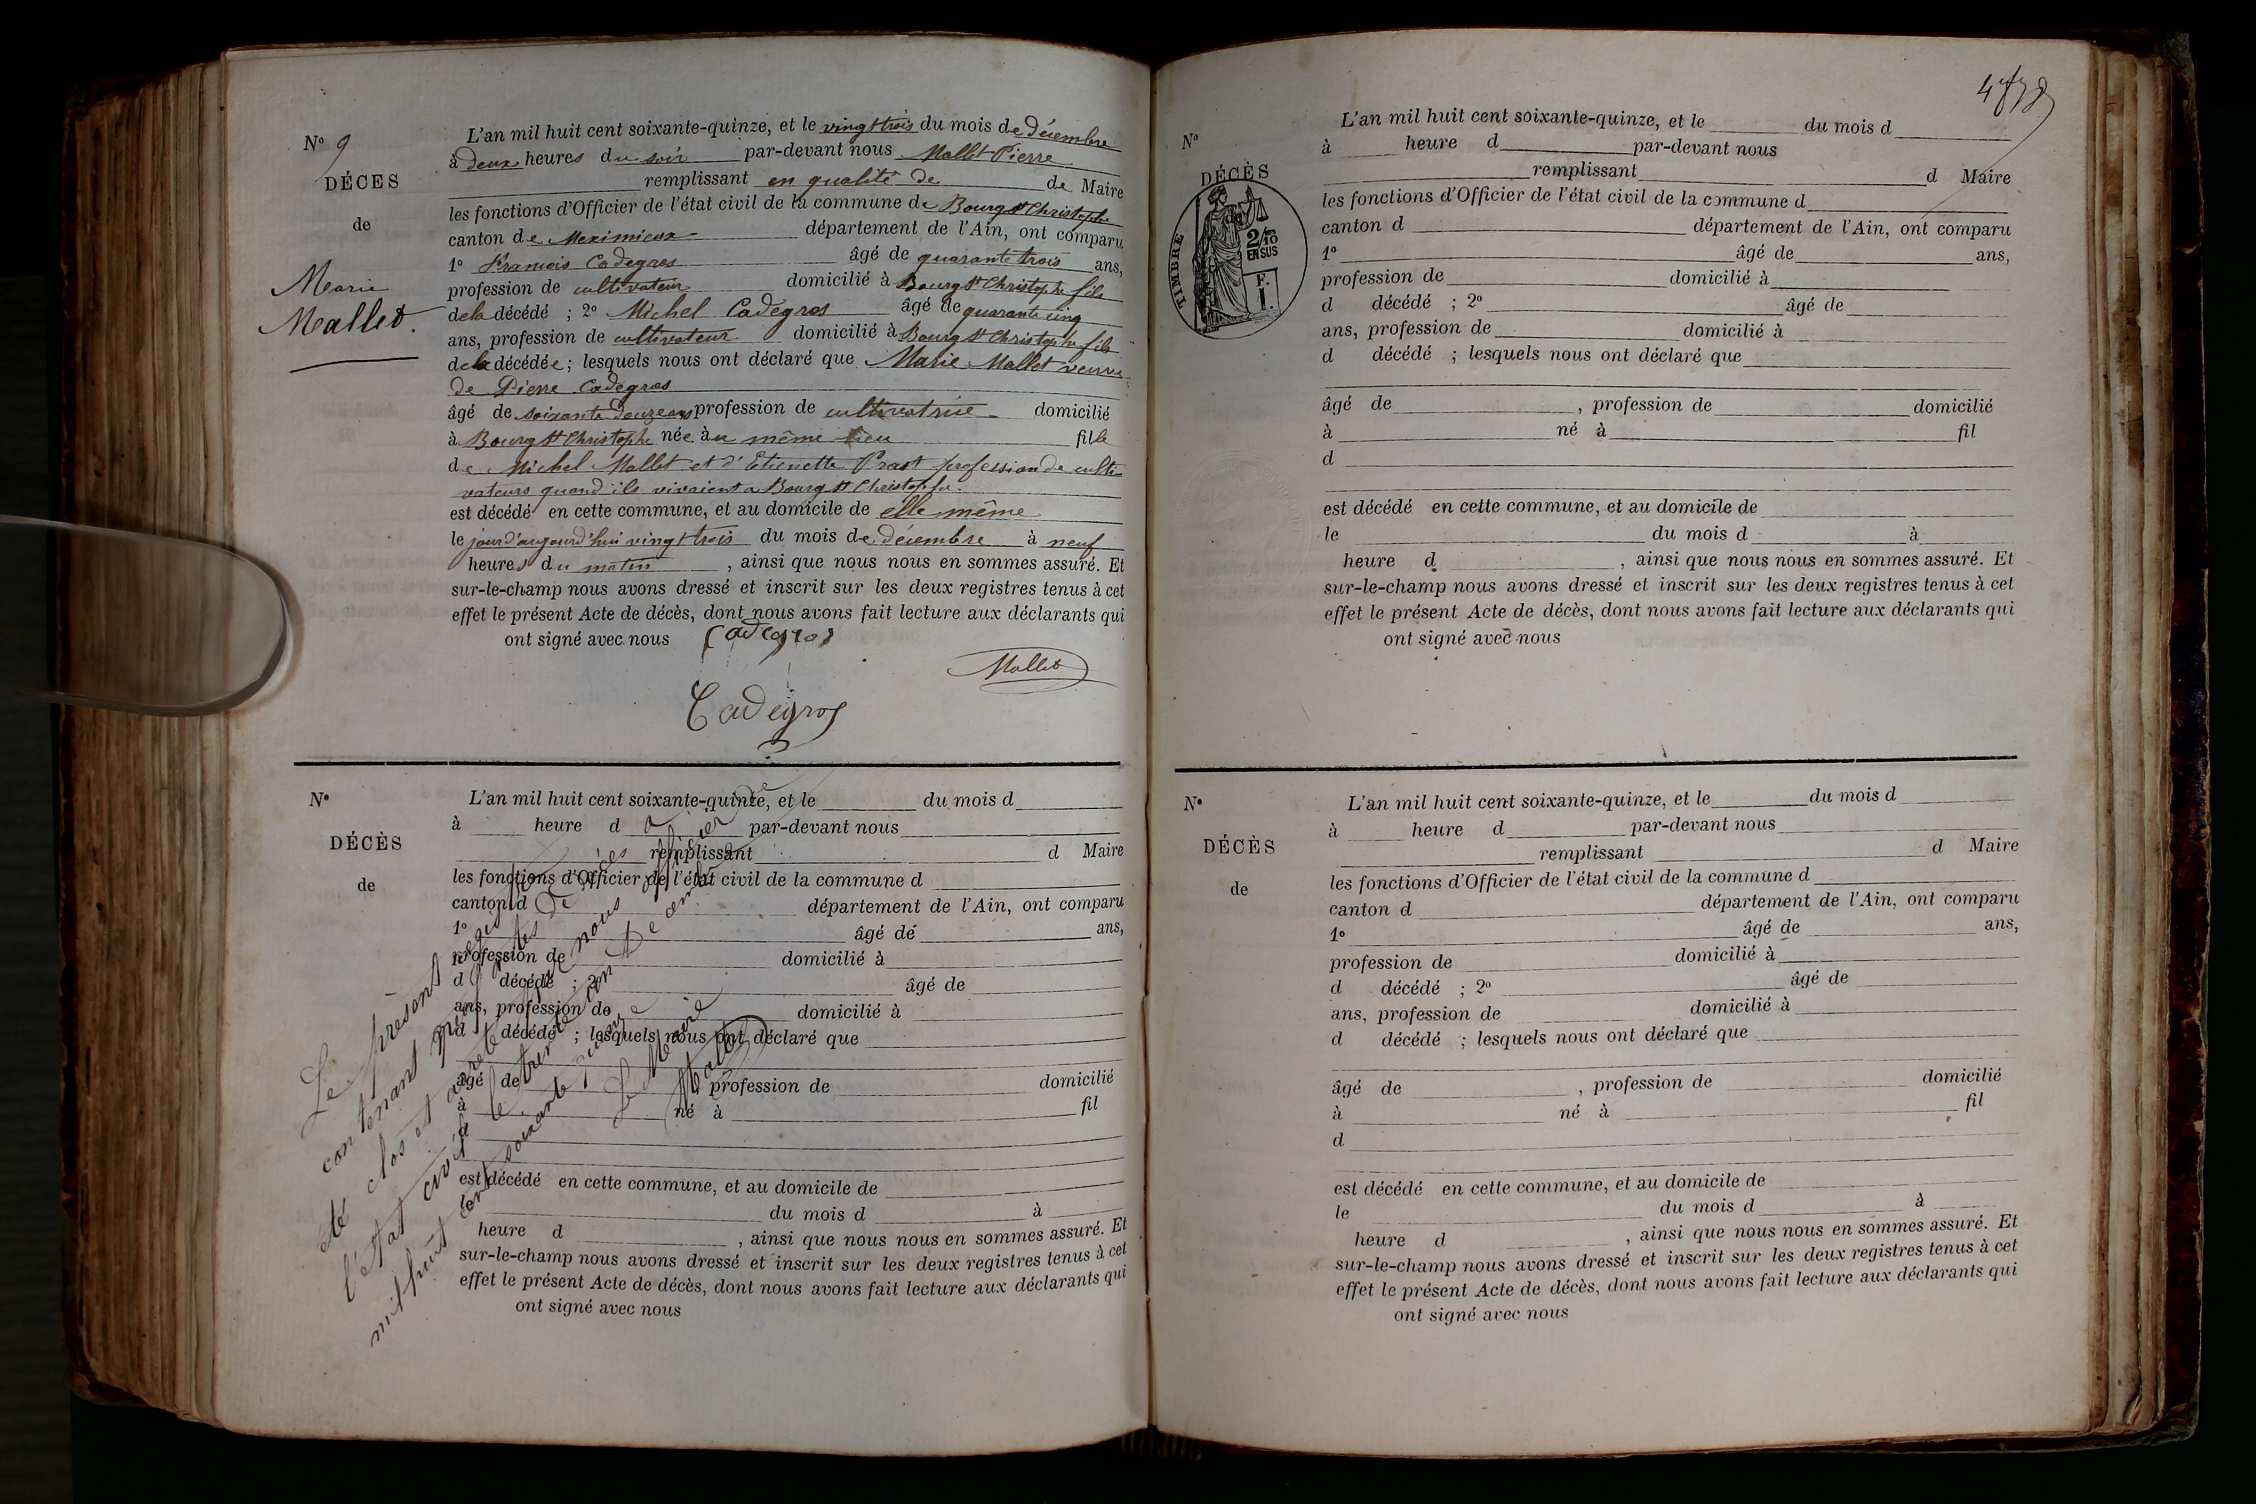 Nº 9
DÉCES
de
Marie
Mallet.
L'an mil huit cent soixante-quinze, et le vingt trois du mois de Décembre
à deux heures du soir par-devant nous Mallet Pierre
remplissant en qualité de de Maire
les fonctions d'Officier de l'état civil de la commune de Bourg St Christophe
canton de Meximieux département de l'Ain, ont comparu
1º Francois Cadegros âgé de quarante trois ans,
profession de cultivateur domicilié à Bourg St Christophe fils
de la décédé ; 2º Michel Cadegros âgé de quarante cinq
ans, profession de cultivateur domicilié à Bourg St Christophe fils
de la décédée ; lesquels nous ont déclaré que Marie Mallet veuve
de Pierre Cadegros
âgé de soixante douze ans profession de cultivatrice domicilié
à Bourg St Christophe née àu même lieu fille
de Michel Mallet et d'Etienette Prast profession de culti-
vateurs quand ils vivaient a Bourg St Christophe.
est décédé en cette commune, et au domicile de elle même
le jourd'aujourd'hui vingt trois du mois de décembre à neuf
heures du matin , ainsi que nous nous en sommes assuré. Et
sur-le-champ nous avons dressé et inscrit sur les deux registres tenus à cet
effet le présent Acte de décès, dont nous avons fait lecture aux déclarants qui
ont signé avec nous Cadegros
Mallet
Cadegros
Nº
DÉCÈS
de
L'an mil huit cent soixante-quinze, et le du mois d
à heure d par-devant nous
remplissant d Maire
les fonctions d'Officier de l'état civil de la commune d
canton d département de l'Ain, ont comparu
1º âgé de ans,
profession de domicilié à
d décédé ; 2º âgé de
ans, profession de domicilié à
d décédé ; lesquels nous ont déclaré que
âgé de , profession de domicilié
à né à fil
d
est décédé en cette commune, et au domicile de
le du mois d à
heure d , ainsi que nous nous en sommes assuré. Et
sur-le-champ nous avons dressé et inscrit sur les deux registres tenus à cet
effet le présent Acte de décès, dont nous avons fait lecture aux déclarants qui
ont signé avec nous
Le présent registre de décès
contenant neuf actes a
été clos et arrêté par nous officier de
l'état civil le trente un Décembre
mil huit cent soixante quinze
Le Maire
Mallet
Nº
DÉCÈS
de
TIMBRE
2/10
EN SUS
F.
1.
L'an mil huit cent soixante-quinze, et le du mois d
à heure d par-devant nous
remplissant d Maire
les fonctions d'Officier de l'état civil de la commune d
canton d département de l'Ain, ont comparu
1º âgé de ans,
profession de domicilié à
d décédé ; 2º âgé de
ans, profession de domicilié à
d décédé ; lesquels nous ont déclaré que
âgé de , profession de domicilié
à né à fil
d
est décédé en cette commune, et au domicile de
le du mois d à
heure d , ainsi que nous nous en sommes assuré. Et
sur-le-champ nous avons dressé et inscrit sur les deux registres tenus à cet
effet le présent Acte de décès, dont nous avons fait lecture aux déclarants qui
ont signé avec nous
Nº
DÉCÈS
de
L'an mil huit cent soixante-quinze, et le du mois d
à heure d par-devant nous
remplissant d Maire
les fonctions d'Officier de l'état civil de la commune d
canton d département de l'Ain, ont comparu
1º âgé de ans,
profession de domicilié à
d décédé ; 2º âgé de
ans, profession de domicilié à
d décédé ; lesquels nous ont déclaré que
âgé de , profession de domicilié
à né à fil
d
est décédé en cette commune, et au domicile de
le du mois d à
heure d , ainsi que nous nous en sommes assuré. Et
sur-le-champ nous avons dressé et inscrit sur les deux registres tenus à cet
effet le présent Acte de décès, dont nous avons fait lecture aux déclarants qui
ont signé avec nous